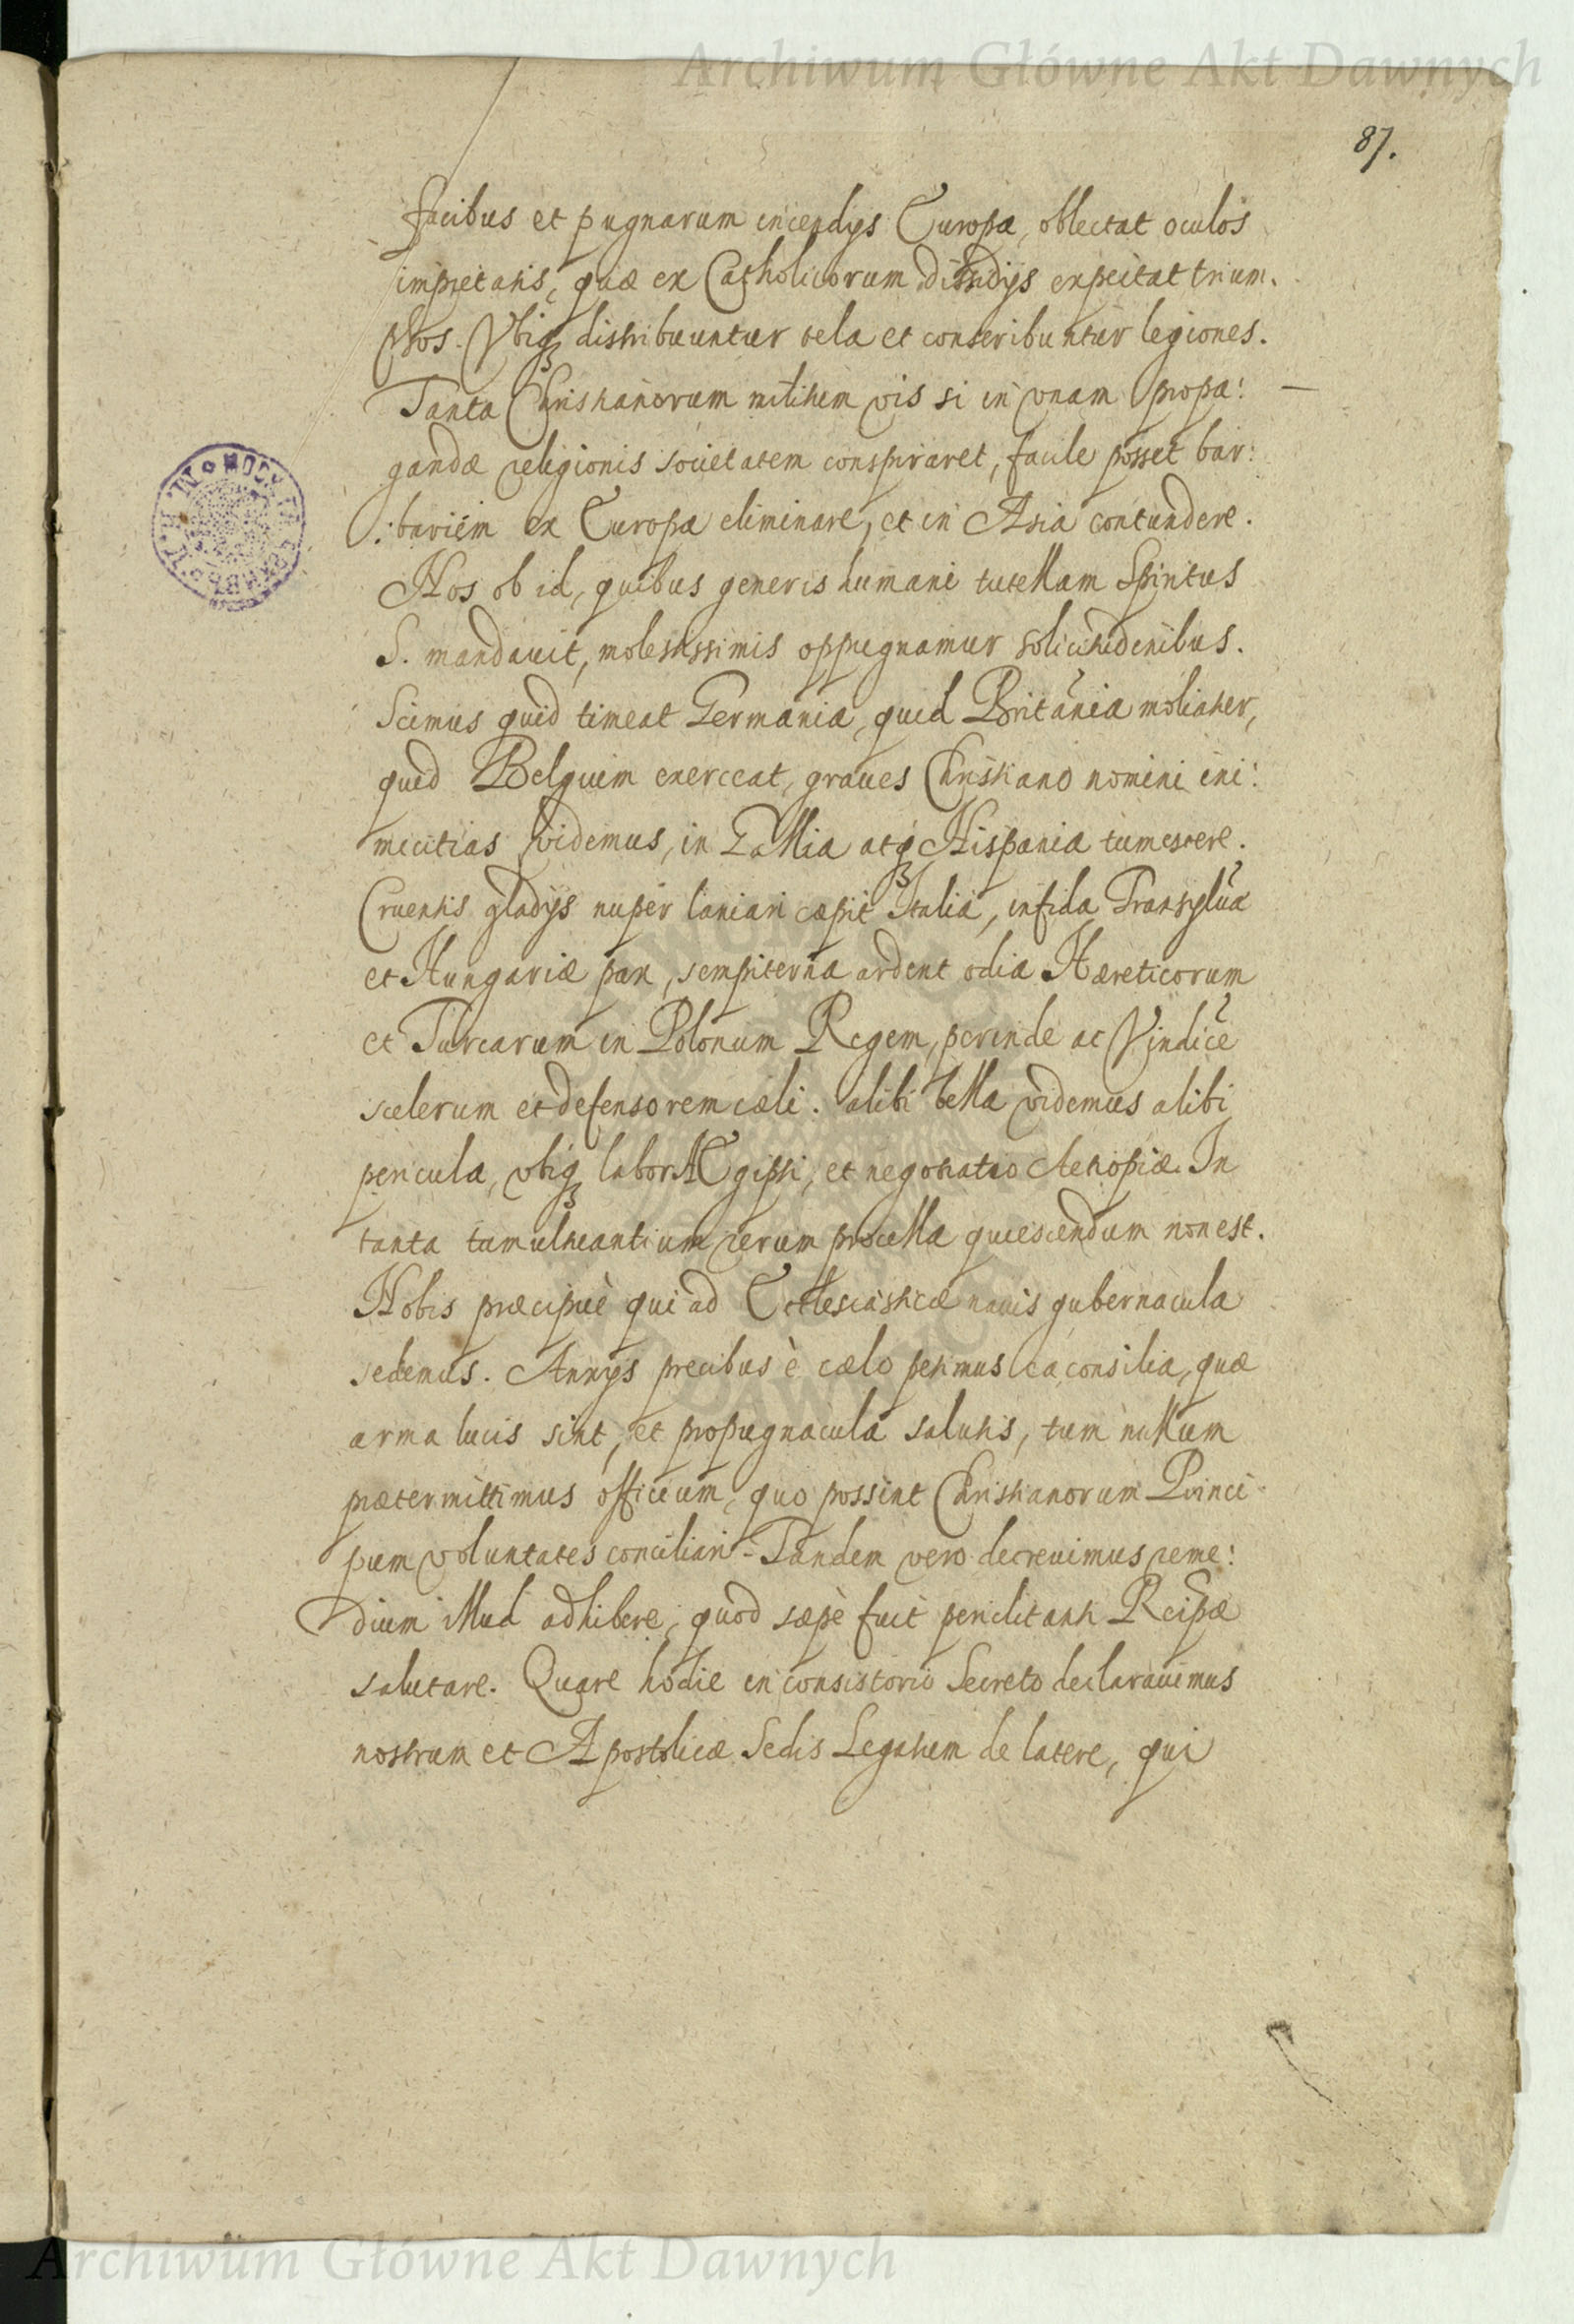 Archiwum Główne Akt Dawnych
87.
facibus et pugnarum incendijs Europa, oblectat oculos
impietatis, quæ ex Catholicorum dissidijs expectat trium.
phos. Vbiq3 distribuuntur tela et conscribuntur legiones.
Tanta Christianorum militum vis si in vnam propa: —
gandæ religionis societatem conspiraret, facile posset bar:
:bariem ex Europa eliminare, et in Asia contundere.
Nos ob id, quibus generis humani tutellam Spiritus
S. mandauit, molestissimis oppugnamur solicitudinibus.
Scimus quid timeat Germania, quid Britãnia moliatur,
quid Belguim exerceat, graues Christiano nomini ini:
micitias videmus, in Gallia atq3 Hispania tumescere.
Cruentis gladijs nuper laniari cæpit Italia, infida Transyluã
et Hungariæ pax, sempiterna ardent odia Hæreticorum
et Turcarum in Polonum Regem, perinde ac Vindicẽ
scelerum et defensorem cæli. alibi bella videmus alibi
pericula, vbiq3 labor Ægipti, et negotiatio Aetiopiæ. In
tanta tumultuantium rerum procella quiescendum non est.
Nobis præcipuè qui ad Ecclesiasticæ nauis gubernacula
sedemus. Annijs precibus è cælo petimus ea consilia, quæ
arma lucis sint, et propugnacula salutis, tum nullum
prætermittimus officium, quo possint Christianorum Princi-
pum voluntates conciliari - Tandem vero decreuimus reme:
dium illud adhibere, quod sæpè fuit periclitanti Reipæ
salutare. Quare hodie in consistorio Secreto declarauimus
nostrum et Apostolicæ Sedis Legatum de latere, qui
Archiwum Główne Akt Dawnych